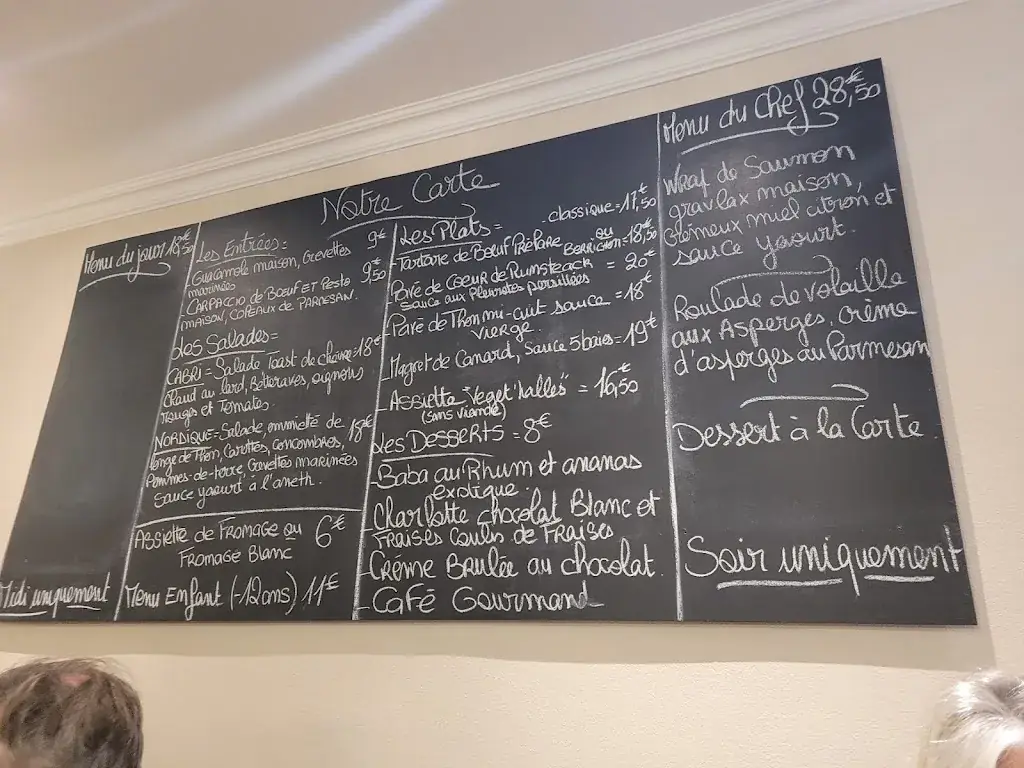 Notre Carte
Menu du jour 18,50€
Midi uniquement
Les Entrées=
Guacamole maison, Crevettes 9€
marinées
CARPACCIO de Bœuf ET Pesto 9,50€
MAISON, COPEAUX de PARMESAN.
Les Salades=
CABRI= Salade Toast de chèvre=18€
Chaud au lard, Betteraves, oignons
Rouges et Tomates.
NORDIQUE=Salade, emmietté de 18€
longe de Thon, Carottes, Concombres,
Pommes-de-terre, Crevettes marinées
Sauce yaourt à l'aneth.
Assiette de Fromage ou 6€
Fromage Blanc
Menu Enfant (-12ans) 11€
Les Plats=
classique=17,50€
Tartare de Bœuf Préparé ou
BERRICHON=18,50€
Pavé de Coeur de Rumsteack = 20€
Sauce aux Pleurotes persillées
Pavé de Thon mi-cuit sauce = 18€
Vierge.
Magret de Canard, Sauce 5 baies=19€
Assiette "Veget'halles" = 16,50
(Sans viande)
Les Desserts = 8€
Baba au Rhum et ananas
exotique.
Charlotte chocolat Blanc et
Fraises Coulis de Fraises
Crème Brulée au chocolat.
Café Gourmand
Menu du Chef 28,50€
Wrap de Saumon
gravlax maison,
Crémeux miel citron et
sauce yaourt.
Roulade de volaille
aux Asperges, crème
d'asperges au Parmesan
Dessert à la Carte.
Soir uniquement